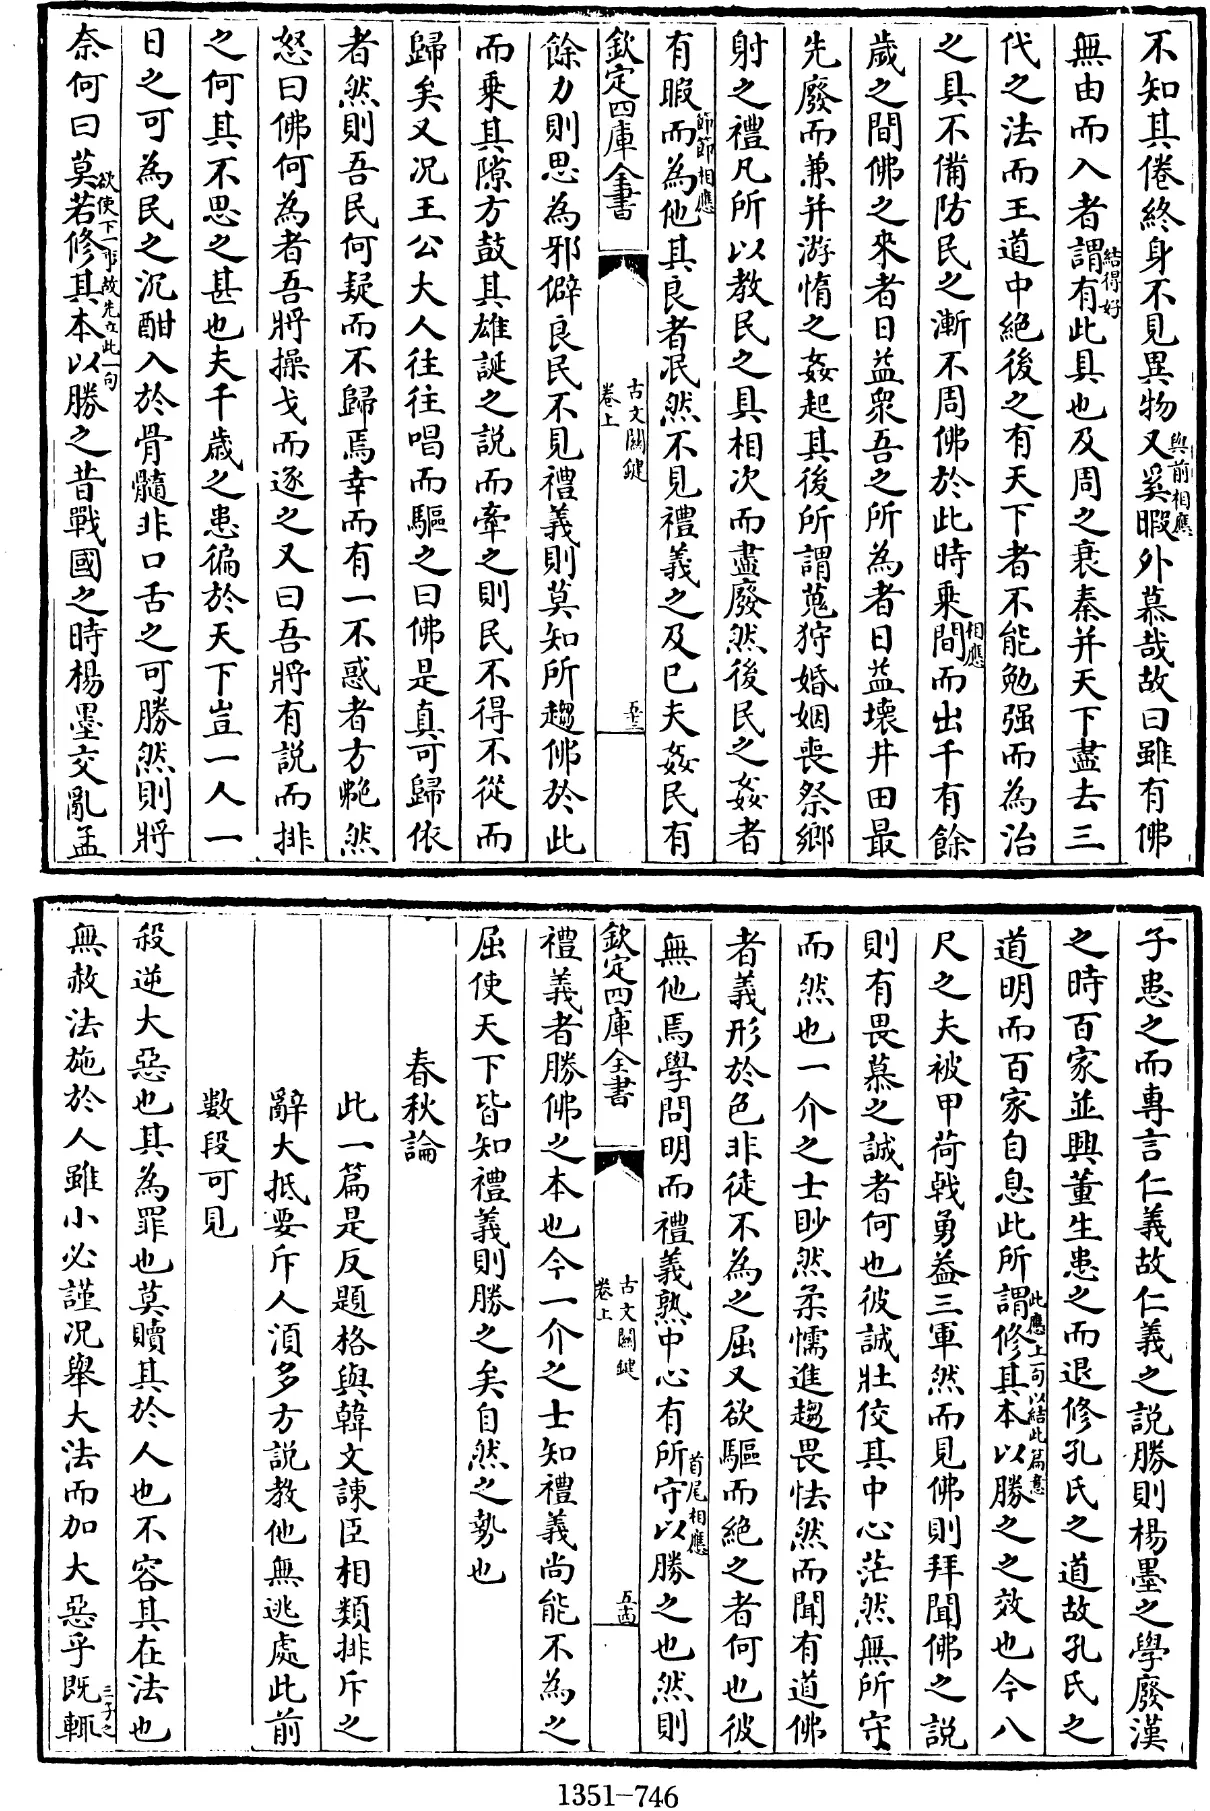 不知其倦終身不見異物又奚暇外慕哉故曰雖有佛
與前相應
無由而入者謂有此具也及周之衰秦并天下盡去三
結得好
代之法而王道中絕後之有天下者不能勉强而為治
之具不備防民之漸不周佛於此時乗間而出千有餘
相應
歲之間佛之來者日益衆吾之所為者日益壞井田最
先廢而兼并游惰之姦起其後所謂蒐狩婚姻喪祭鄉
射之禮凡所以教民之具相次而盡廢然後民之姦者
有暇而為他其良者泯然不見禮義之及已夫姦民有
節節相應
欽定四庫全書
古文關鍵
卷上
五十三
餘力則思為邪僻良民不見禮義則莫知所趨佛於此
而乗其隙方鼓其雄誕之説而牽之則民不得不從而
歸矣又况王公大人往往唱而驅之曰佛是真可歸依
者然則吾民何疑而不歸焉幸而有一不惑者方艴然
怒曰佛何為者吾將操戈而逐之又曰吾將有説而排
之何其不思之甚也夫千歲之患徧於天下豈一人一
日之可為民之沉酣入於骨髓非口舌之可勝然則將
奈何曰莫若修其本以勝之昔戰國之時楊墨交亂孟
欲使下一事故先立此一句
子患之而專言仁義故仁義之説勝則楊墨之學廢漢
之時百家並興董生患之而退修孔氏之道故孔氏之
道明而百家自息此所謂修其本以勝之之效也今八
此應上一句以結此篇意
尺之夫被甲荷戟勇葢三軍然而見佛則拜聞佛之説
則有畏慕之誠者何也彼誠壯佼其中心茫然無所守
而然也一介之士眇然柔懦進趨畏怯然而聞有道佛
者義形於色非徒不為之屈又欲驅而絕之者何也彼
無他焉學問明而禮義熟中心有所守以勝之也然則
首尾相應
欽定四庫全書
古文關鍵
卷上
五十四
禮義者勝佛之本也今一介之士知禮義尚能不為之
屈使天下皆知禮義則勝之矣自然之勢也
春秋論
此一篇是反題格與韓文諫臣相類排斥之
辭大抵要斥人須多方説教他無逃處此前
數段可見
殺逆大惡也其為罪也莫贖其於人也不容其在法也
無赦法施於人雖小必謹况舉大法而加大惡乎既輒
三字之
1351-746